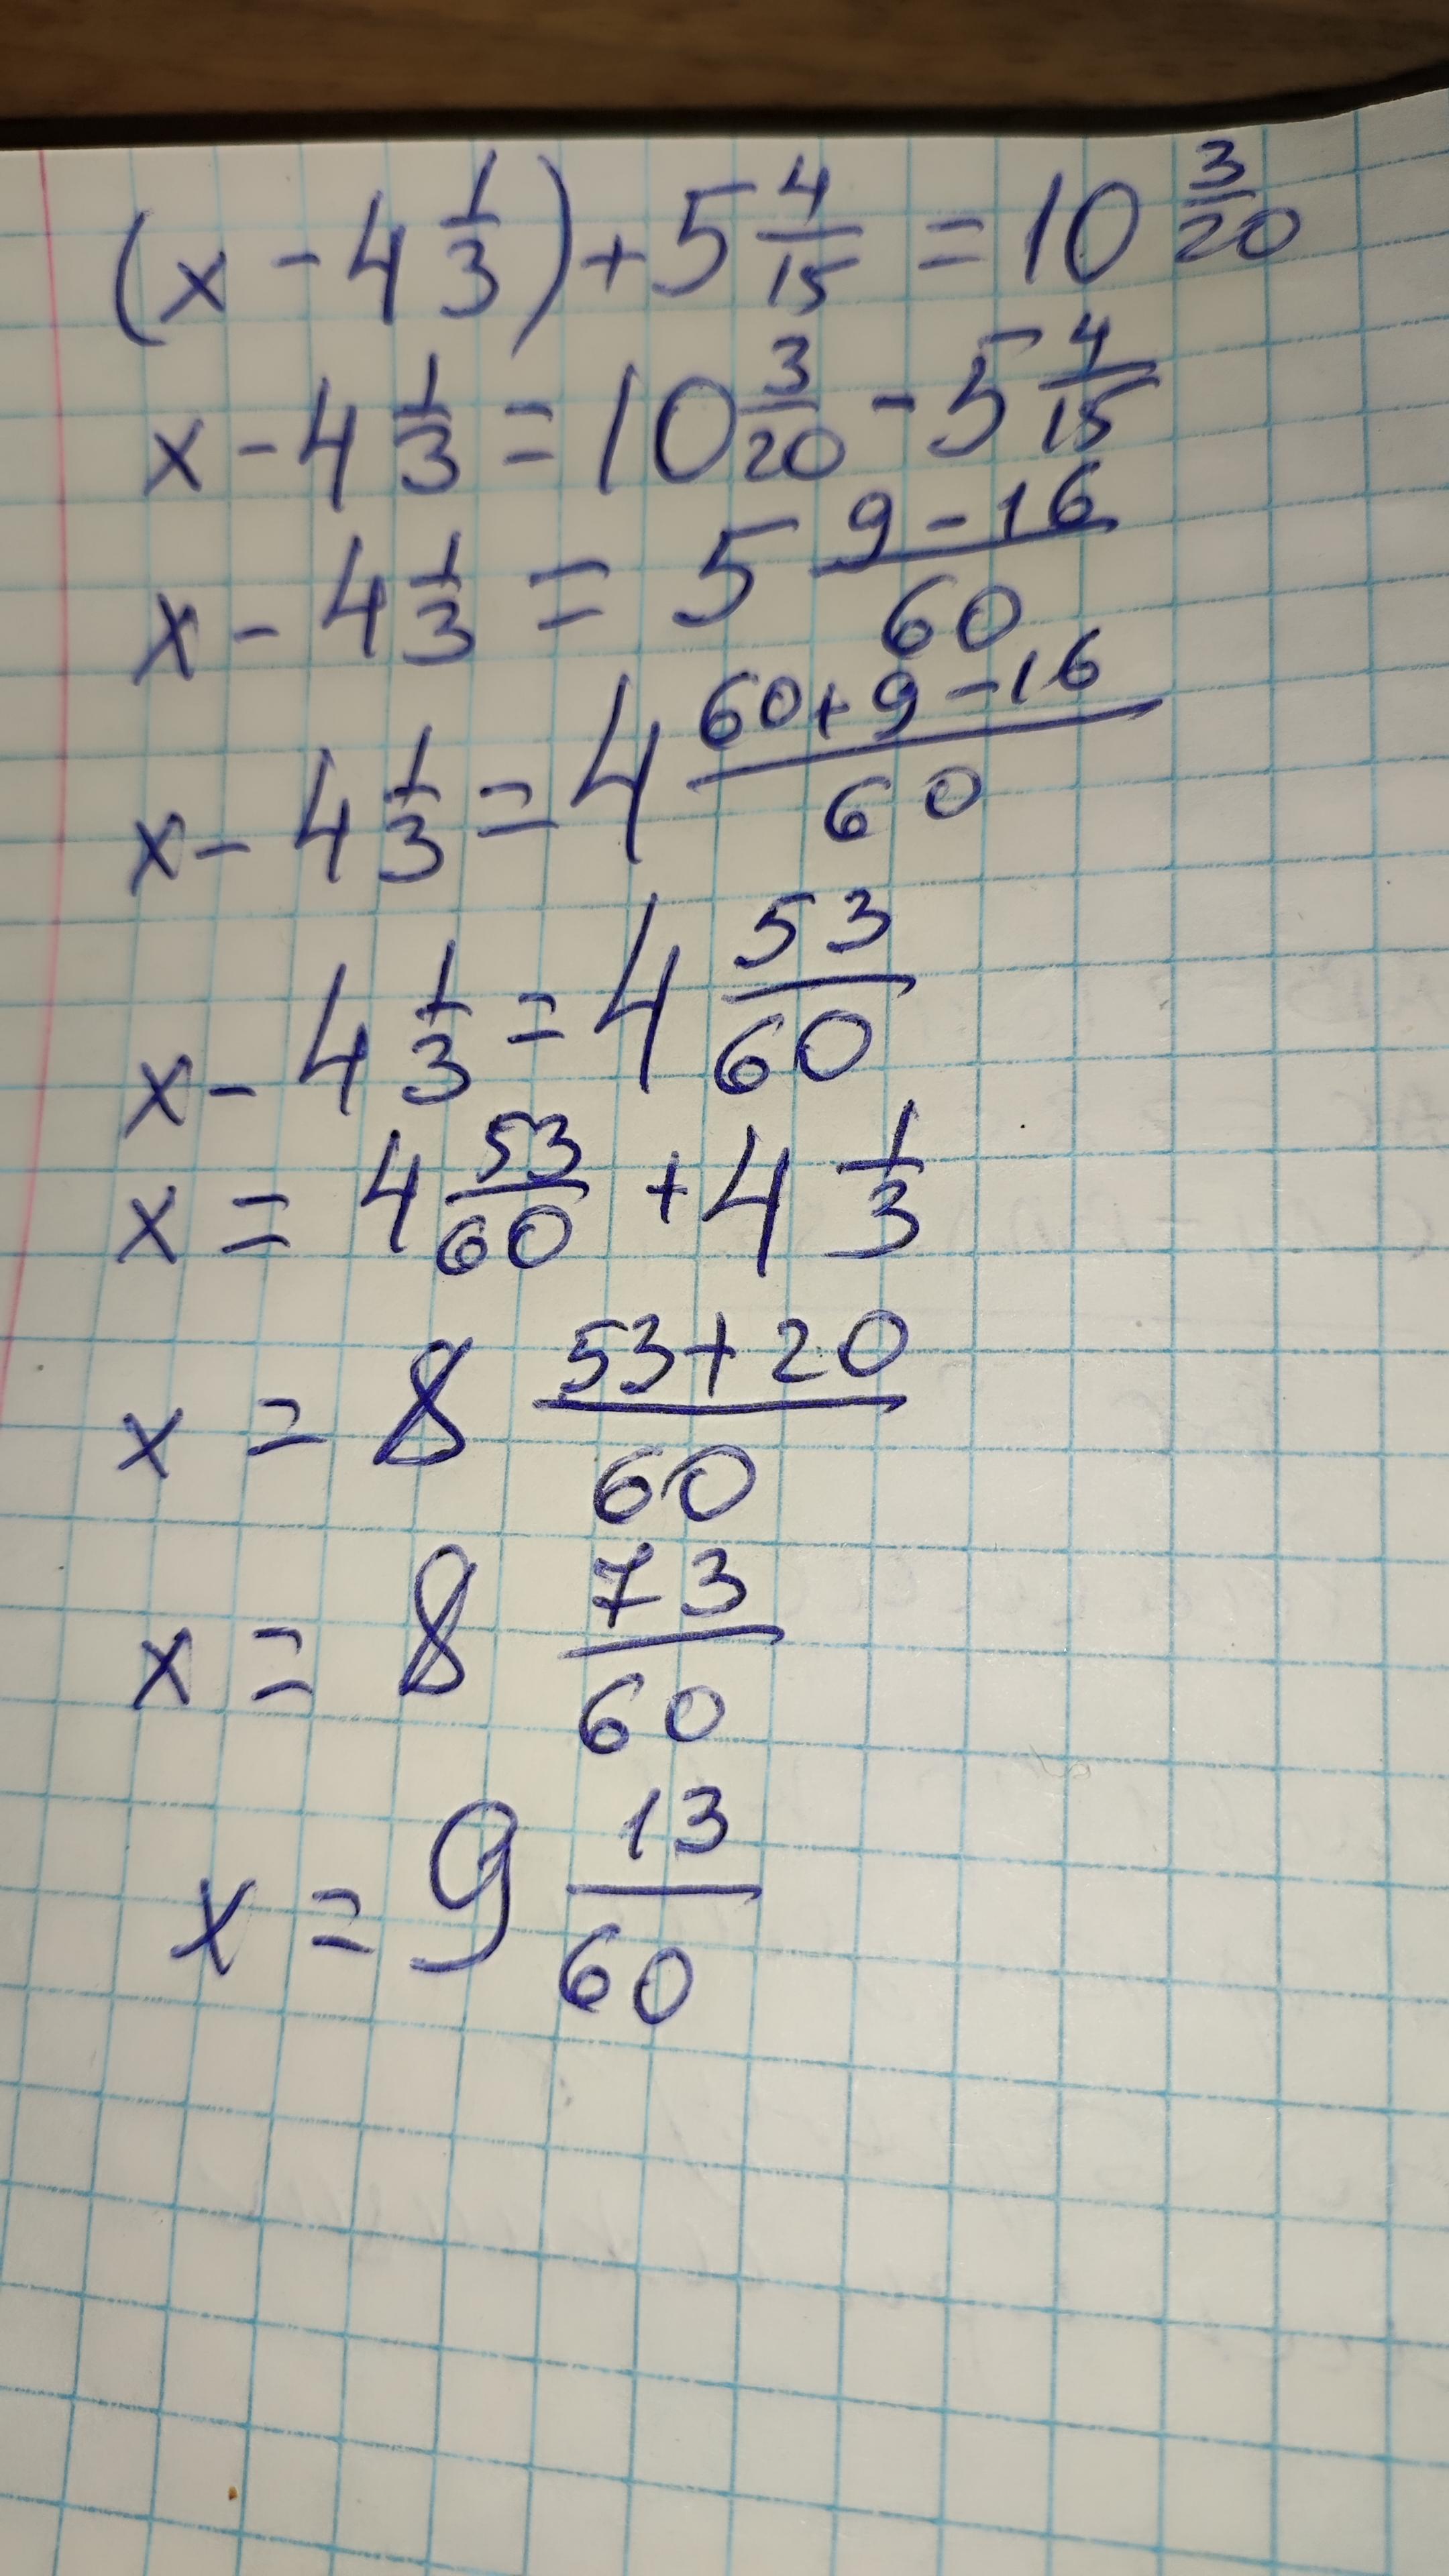 (x - 4 1/3) + 5 4/15 = 10 3/20
x - 4 1/3 = 10 3/20 - 5 4/15
x - 4 1/3 = 5 (9 - 16)/60
x - 4 1/3 = 4 (60 + 9 - 16)/60
x - 4 1/3 = 4 53/60
x = 4 53/60 + 4 1/3
x = 8 (53 + 20)/60
x = 8 73/60
x = 9 13/60